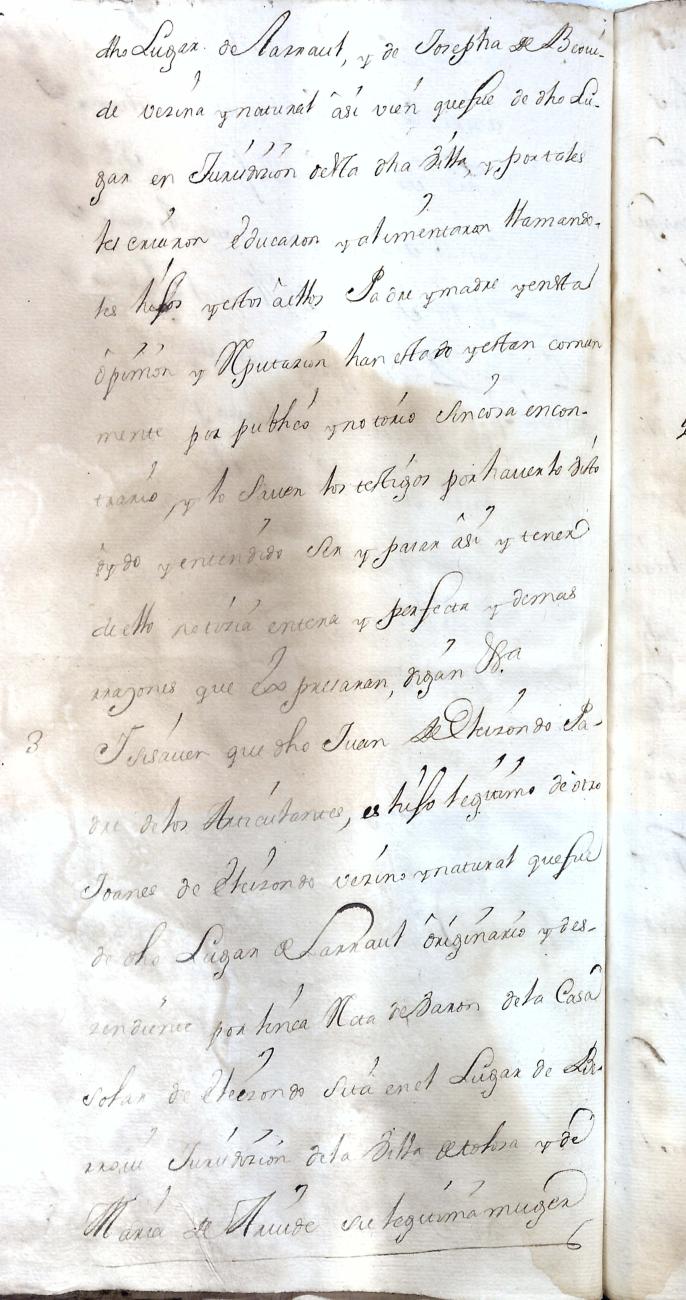 dho Lugar de Larraul, y de Josepha de
de vezina y natural asi vien que fue de dho Lu-
gar en Jurisdizion desta dha Billa, y por tales
les criaron educaron y alimentaron llamando-
les hijos y estos a ellos Padre y madre y en esta
opinion y Reputazion han estado y estan comun
mente por publico y notorio sin cosa en con-
trario, y lo saven los testigos por haverlo bisto
oydo y entendido ser y pasar asi y tener
de ello notizia entera y perfecta y demas
rrazones que expresaran, digan &ra
3 Y si saven que dho Juan de Eleizondo Pa-
dre de los Articulantes, es hijo legitimo de otro
Joanes de Eleizondo vezino y natural que fue
de dho Lugar de Larraul originario y des-
zendiente por linea Reta de Baron de la Casa
solar de Eleizondo sita en el Lugar de
Jurisdizion de la Billa de tolosa y de
Maria de su legitima muger